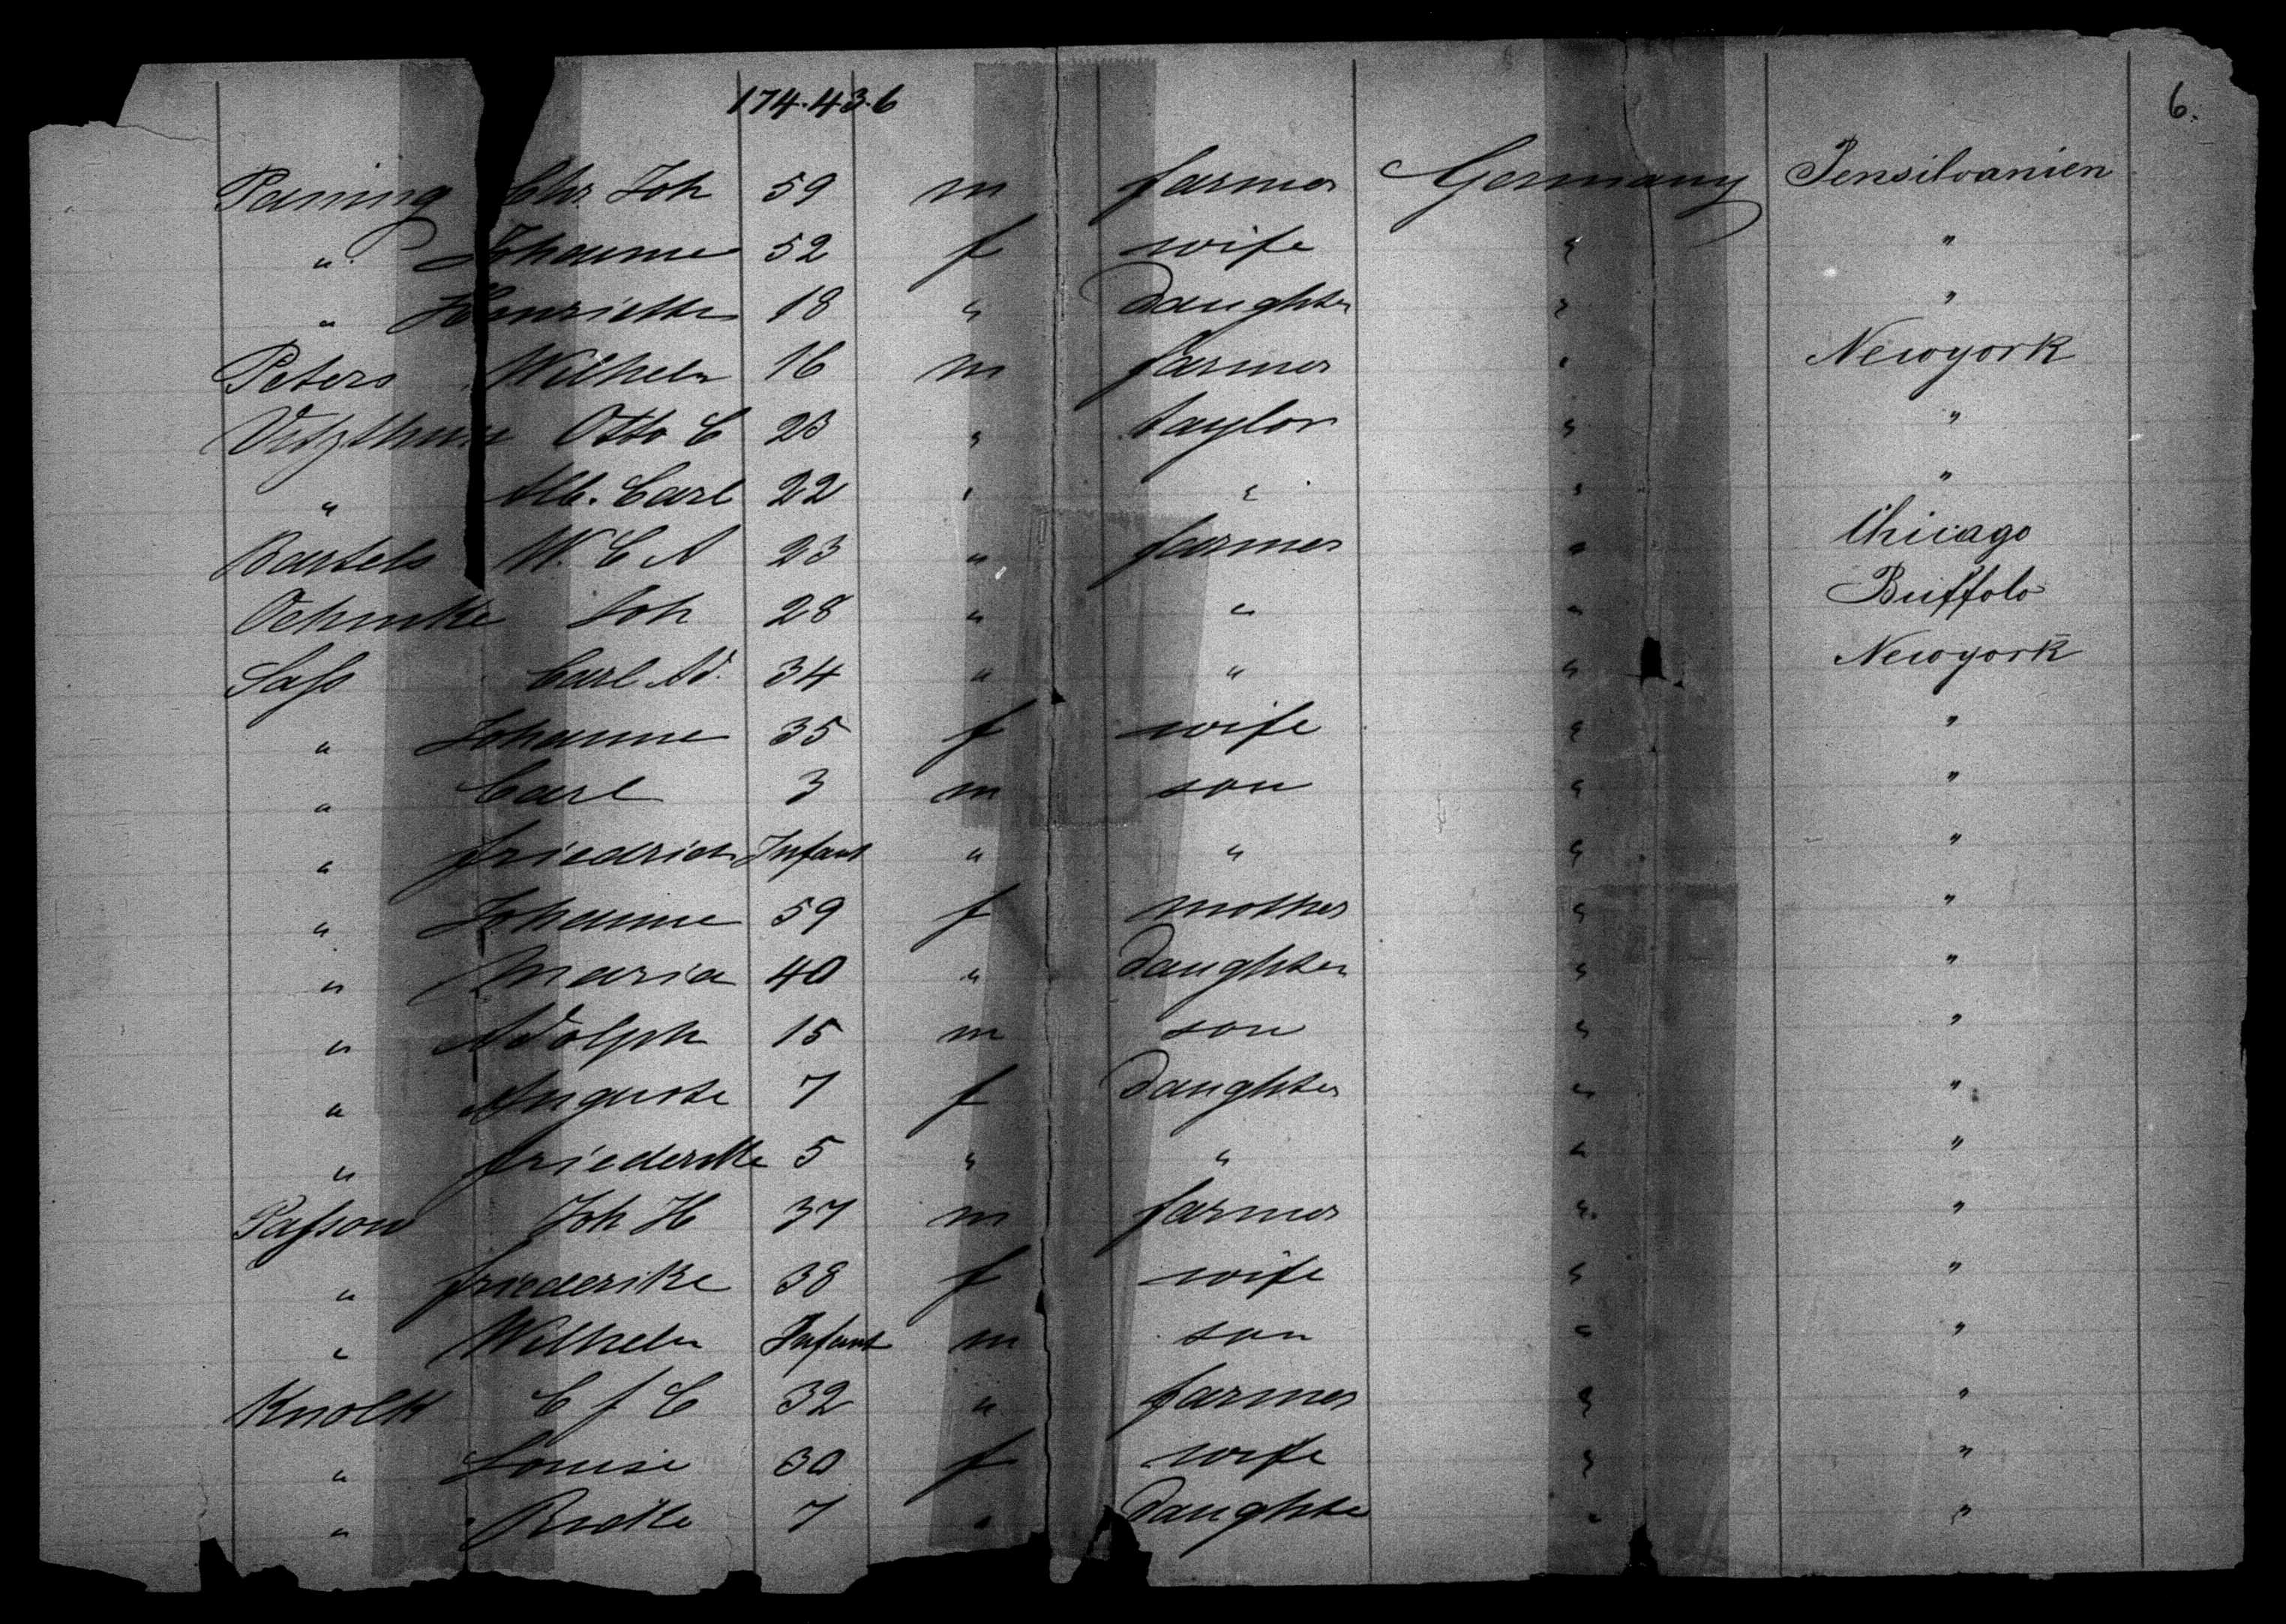 174.43.6
6.
Paning Chr. Joh 59 m farmer Germany Pensilvanien
" Johanne 52 f wife " "
" Henriette 18 " Daughter " "
Peters Wilhelm 16 m farmer " Newyork
Vitzthum Otto C 23 " taylor " "
" Alb. Carl 22 " " " "
Bartels W. C A 23 " farmer " Chicago
Oehmke Joh 28 " " " Buffolo
Saſs Carl Ad. 34 " " " Newyork
" Johanne 35 f wife " "
" Carl 3 m son " "
" Friedrich Infant " " " "
" Johanne 59 f mother " "
" Maria 40 " Daughter " "
" Adolph 15 m son " "
" Auguste 7 f Daughter " "
" 5 " " " "
Paſsow Joh H 37 m farmer " "
" Friederike 38 f wife " "
" Wilhelm Infant m son " "
C f C 32 " farmer " "
" Louise 30 f wife " "
" 7 " Daughter " "